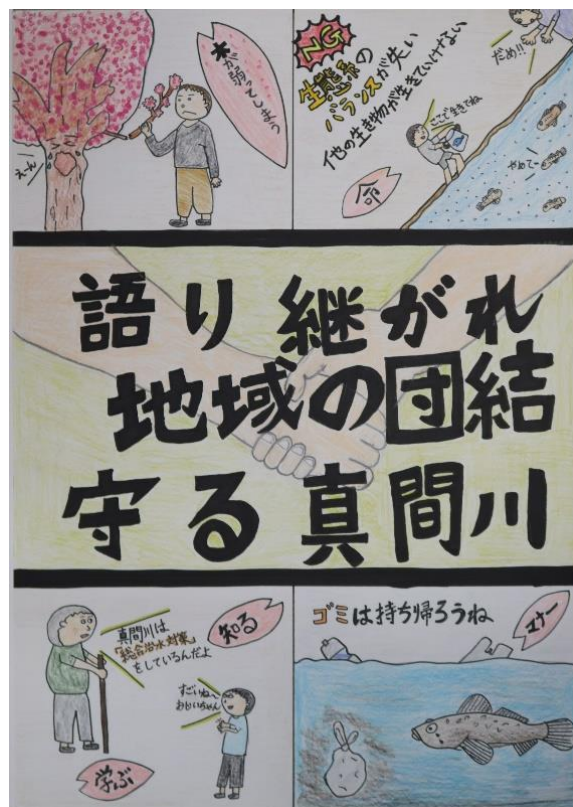 木が弱ってしまう
えーん
NG
生態系の
バランスが失い
他の生き物が生きていけない
だめ!!
ここで生きてね
やめてー
命
語り継がれ
地域の団結
守る真間川
真間川は
「総合治水対策」
をしているんだよ
知る
すごいねー
おじいちゃん
学ぶ
ゴミは持ち帰ろうね
マナー